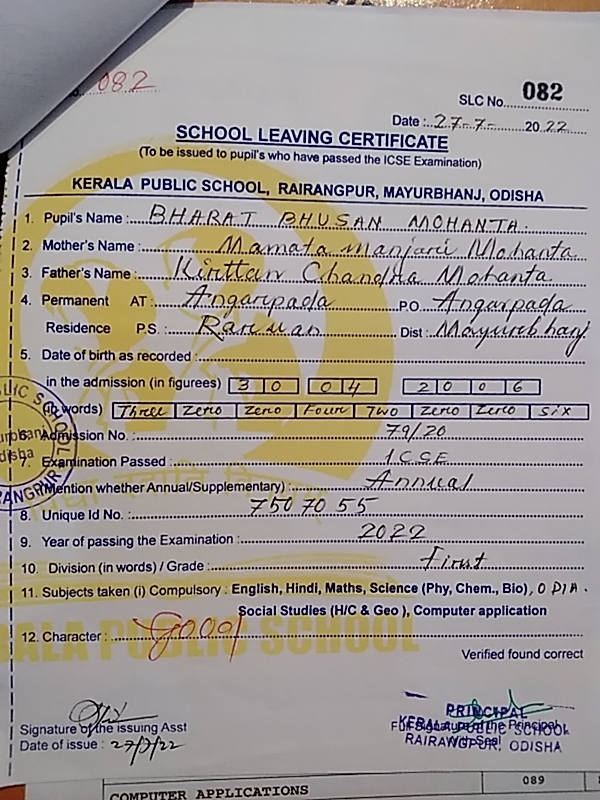 082
SLC No. 082
Date : 27-7- 2022
SCHOOL LEAVING CERTIFICATE
(To be issued to pupil's who have passed the ICSE Examination)
KERALA PUBLIC SCHOOL, RAIRANGPUR, MAYURBHANJ, ODISHA
1. Pupil's Name : BHARAT BHUSAN MOHANTA.
2. Mother's Name : Mamata Manjari Mohanta
3. Father's Name : Kirttan Chandra Mohanta
4. Permanent AT : Angaripada P.O. Angarpada
Residence P.S. : Raruan Dist : Mayurbhanj
5. Date of birth as recorded :
in the admission (in figurees) 3 0 0 4 2 0 0 6
(in words) Three Zero Zero Four Two Zero Zero Six
6. Admission No. : 79/20
7. Examination Passed : ICSE
(Mention whether Annual/Supplementary) : Annual
8. Unique Id No. : 7507055
9. Year of passing the Examination : 2022
10. Division (in words) / Grade : First
11. Subjects taken (i) Compulsory : English, Hindi, Maths, Science (Phy, Chem., Bio), ODIA.
Social Studies (H/C & Geo ), Computer application
12. Character : Good
KERALA PUBLIC SCHOOL
Verified found correct
Signature of the issuing Asst
Date of issue : 27/7/22
Full Signature of the Principal
With Seal
PRINCIPAL
KERALA PUBLIC SCHOOL
RAIRANGPUR, ODISHA
089
COMPUTER APPLICATIONS